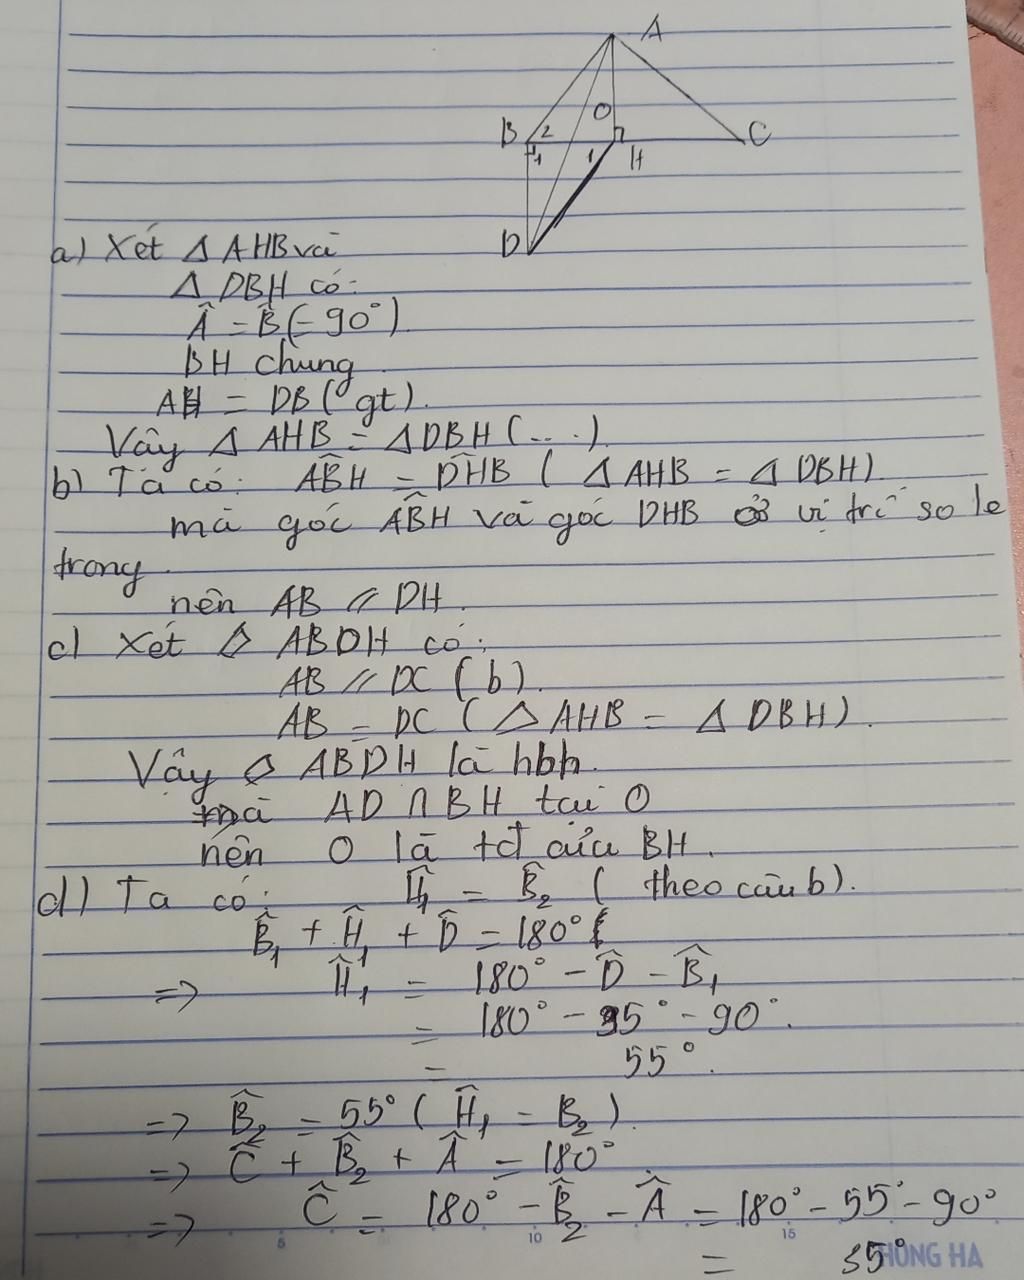 A
O
B 2 C
1 1 H
D
a) Xét Δ AHB và
Δ DBH có:
Â = B̂ (= 90°)
BH chung
AH = DB ( gt).
Vậy Δ AHB = Δ DBH (...)
b) Ta có: AB̂H = DĤB ( Δ AHB = Δ DBH)
mà góc AB̂H và góc DHB ở vị trí so le
trong.
nên AB // DH.
c) Xét ◊ ABDH có:
AB // DC (b).
AB = DC ( Δ AHB = Δ DBH).
Vậy ◊ ABDH là hbh.
mà AD ∩ BH tại O
nên O là tđ của BH.
d) Ta có: Ĥ1 = B̂2 ( theo câu b).
B̂1 + Ĥ1 + D̂ = 180°
=> Ĥ1 = 180° - D̂ - B̂1
= 180° - 35° - 90°.
= 55°.
=> B̂2 = 55° ( Ĥ1 = B2 ).
=> Ĉ + B̂2 + Â = 180°
=> Ĉ = 180° - B̂2 - Â = 180° - 55° - 90°
= 35°
5 10 15 HỒNG HA